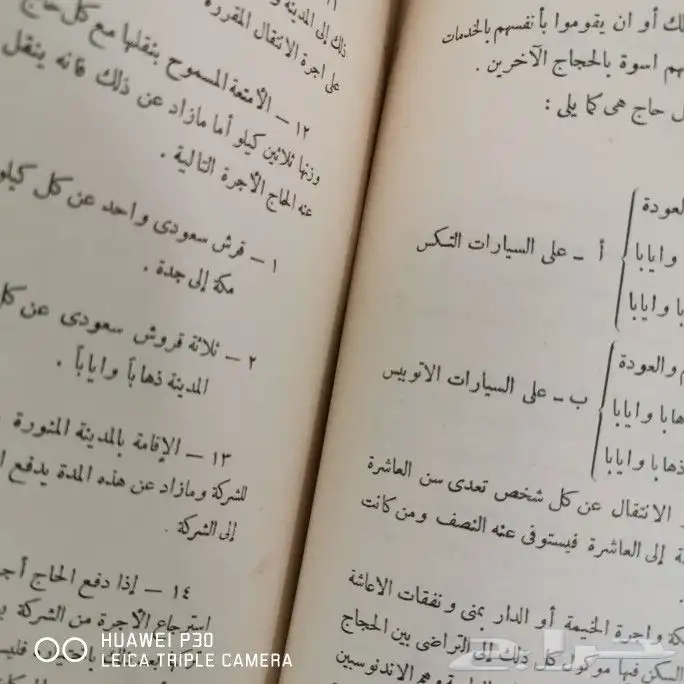 لك أو ان يقوموا بأنفسهم بالخدمات
هم اسوة بالحجاج الآخرين .
ل حاج هى كما يلى :
العودة
أ – على السيارات التكس
وايابا
با وايابا
م والعودة
ب – على السيارات الاتوبيس
هابا وايابا
ذهابا وايابا
و الانتقال عن كل شخص تعدى سن العاشرة
ة إلى العاشرة فيستوفى عنه النصف ومن كانت
كة واجرة الخيمة أو الدار بمنى ونفقات الاعاشة
السكن فيها موكول كل ذلك إلى التراضى بين الحجاج
وهم الاندنوسيين
ذلك إلى المدينة
على اجرة الانتقال المقررة
١٢ – الأمتعة المسموح بنقلها مع كل حاج
وزنها ثلاثين كيلو أما مازاد عن ذلك فانه ينقل
عنه الحاج الأجرة التالية .
١ – قرش سعودى واحد عن كل كيلو
مكة إلى جدة .
٢ – ثلاثة قروش سعودى عن كل
المدينة ذهاباً واياباً .
١٣ – الإقامة بالمدينة المنورة
للشركة ومازاد عن هذه المدة يدفع
إلى الشركة .
١٤ – إذا دفع الحاج
استرجاع الأجرة من الشركة
HUAWEI P30
LEICA TRIPLE CAMERA
حراج